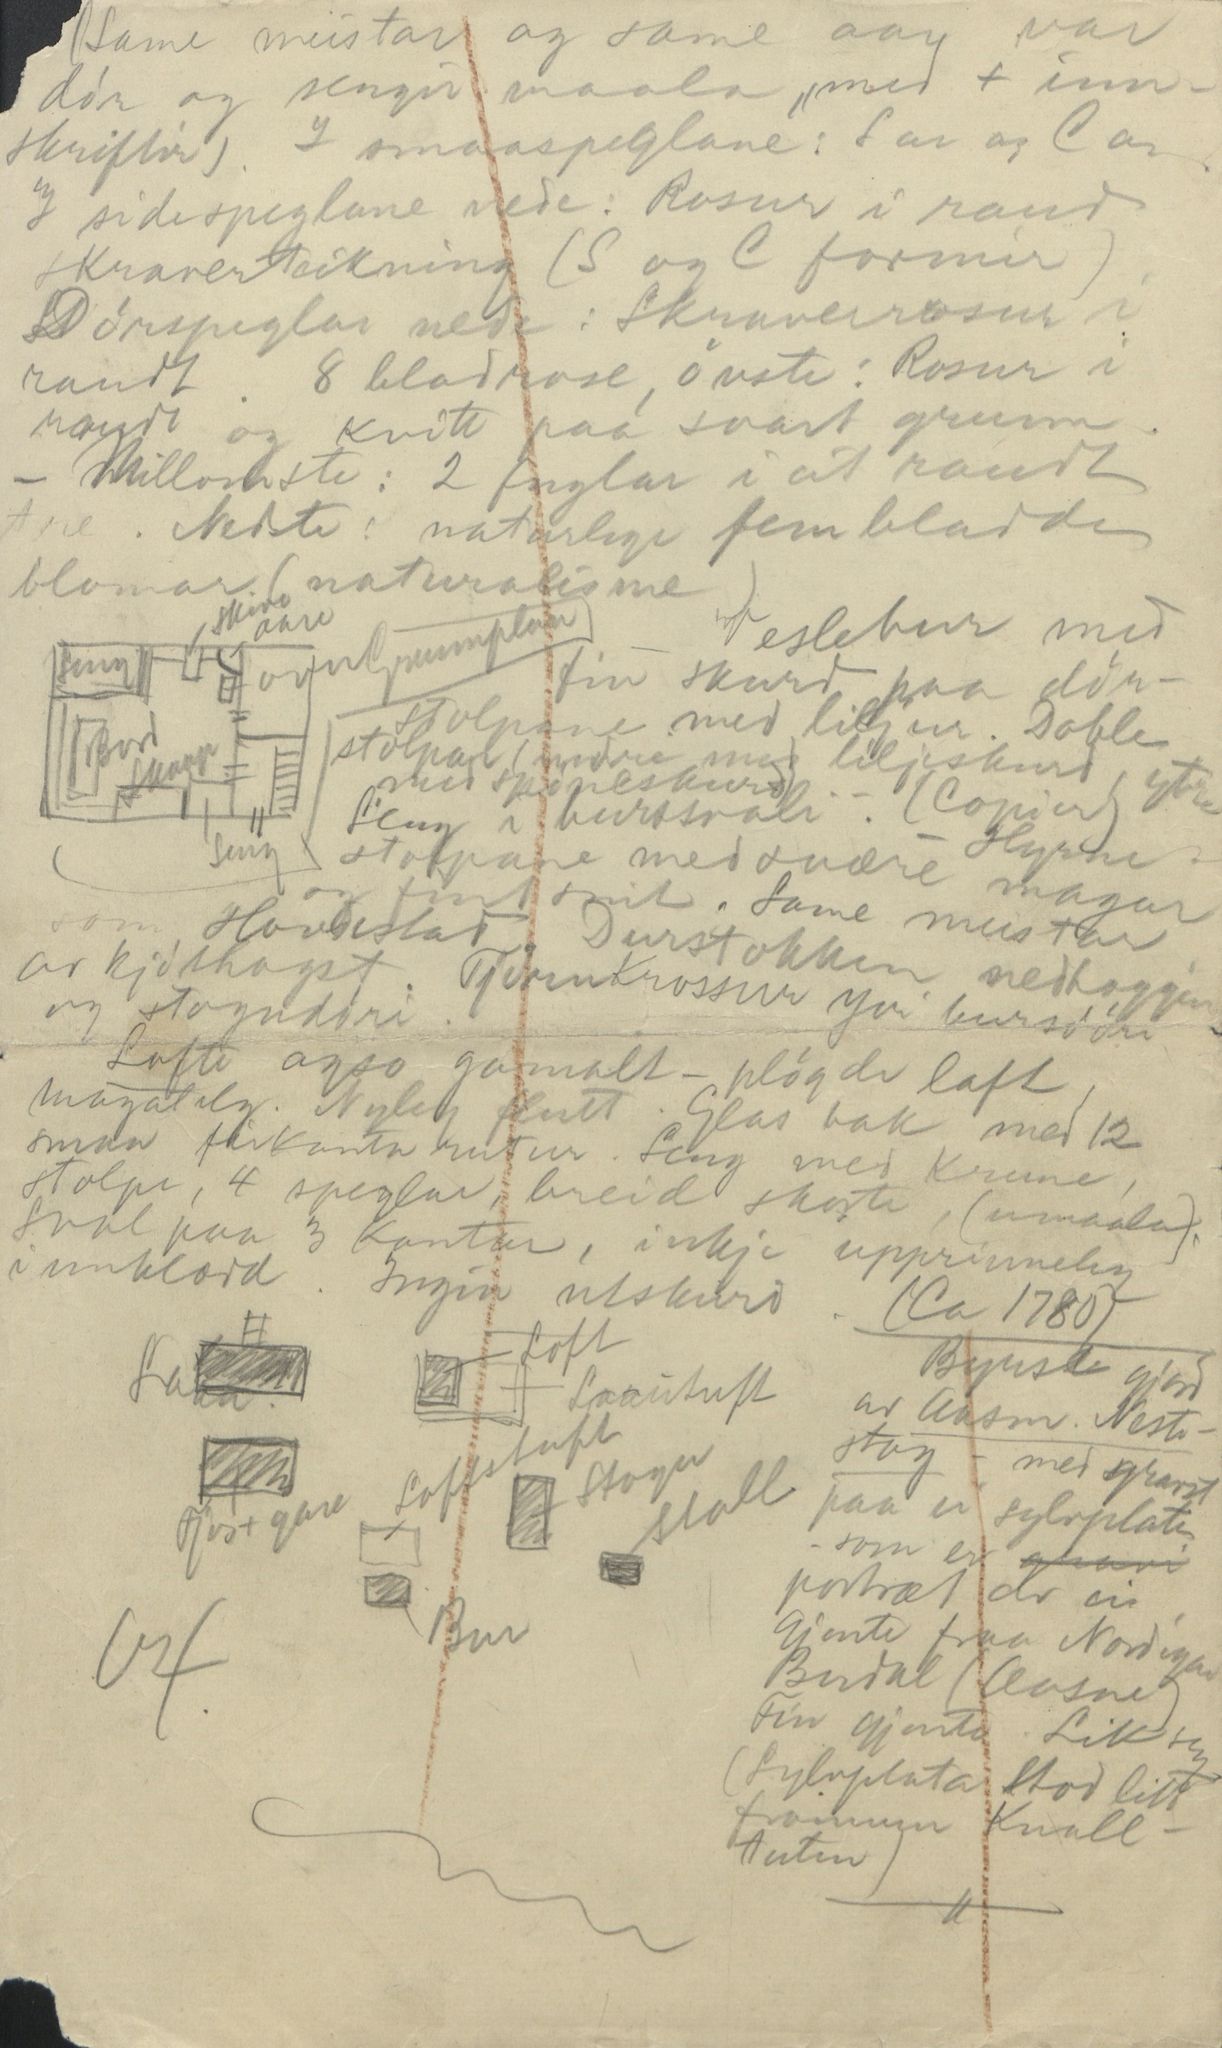 (Same meistar og same aar var
dör og sengir maala, med + inn-
skriftir). I smaaspeglane: S ar og C ar.
I sidespeglane nede: Rosur i raud
skraverteikning (S og C former).
Dörspeglar nede: Skraverrosur i
raudt. 8 bladrose, övste: Rosur i
raudt og kvitt paa svart grunn.
- Millomste: 2 fuglar i eit raudt
tre. Nedste: naturlege fembladde
blomar (naturalisme)
Skive
aare
Seng
ovn
Grunnplan
Bord
Skaap
Seng
eslebur med
fin skurd paa dör-
stolpane med liljur. Doble
stolpar (indre med liljeskurd, ytre
med skurd)
Seng i burssvali. (Copier)
Hyrne-
stolpane med svære magar
og fint snit. Same meistar
som Hovdestad. Durstokken nedhoggin
av kjöthogst. Tjörukrossur yvi bursdöri
og stoguddri.
Lofte ogso gamalt - plögde laft,
magatilg. Nyleg flutt. Glas bak med 12
smaa firkanta rutur. Seng med Krune,
stolpe, 4 speglar, breid skorte, (umaala).
Sval paa 3 Kantar, inkje upprinneleg
innklædd. Ingin utskurd. (Ca 1780)
Loft
Laave
Loftstuft
Stogu
Stall
Fjøs + gare
Bur
Byrste gjord
av Aasm. Neste-
stog - med gravst
paa ei sylvplate
- som er
portræt av ei
Gjente fraa Nordigard
Burdal (Aasne)
Fin gjente. Lik seg
(Sylvplata stod litt
frammum Knall-
tuten)